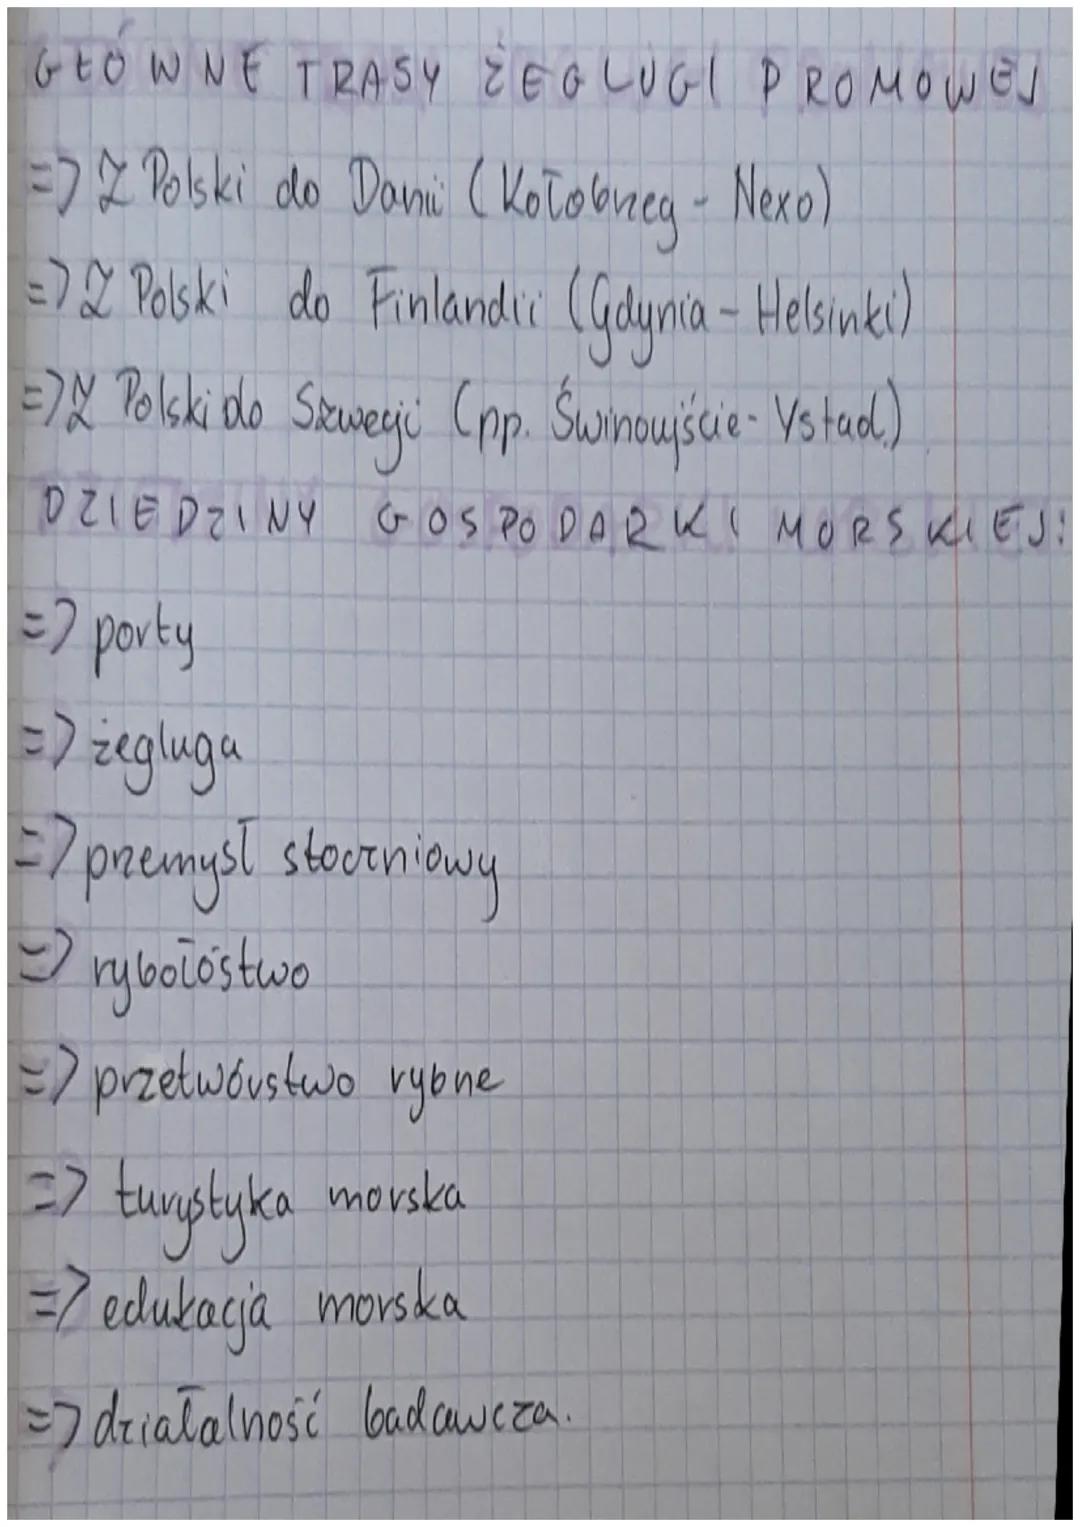 GŁÓWNE TRASY ŻEGLUGI PROMOWEJ
=> Z Polski do Danii (Kołobrzeg - Nexo)
=> Z Polski do Finlandii (Gdynia - Helsinki)
=> Z Polski do Szwecji (np. Świnoujście - Ystad.)
DZIEDZINY GOSPODARKI MORSKIEJ:
=> porty
=> żegluga
=> przemysł stoczniowy
=> rybołóstwo
=> przetwórstwo rybne
=> turystyka morska
=> edukacja morska
=> działalność badawcza.